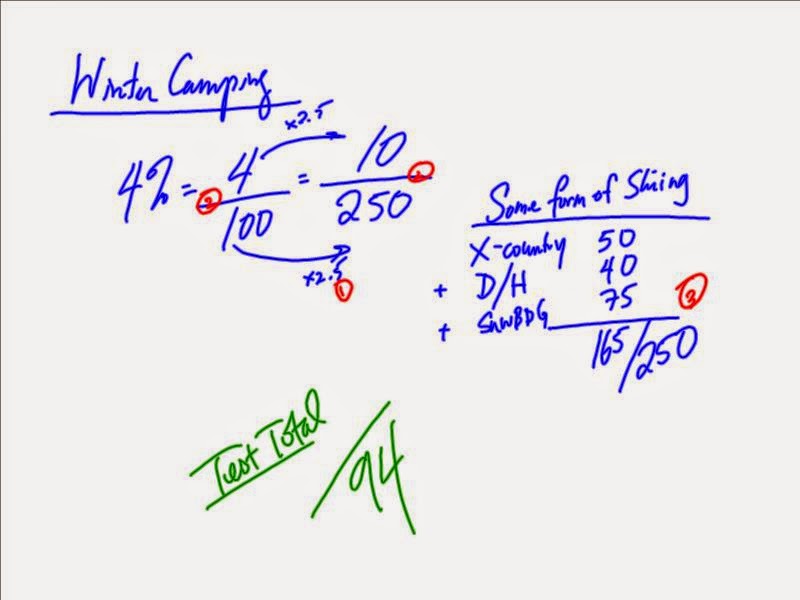 Winter Camping
×2.5
4% = 4/100 = 10/250
② ①
×2.5
①
Some form of Skiing
X-country 50
+ D/H 40
+ SnwBDG 75 ③
165/250
Test Total /94